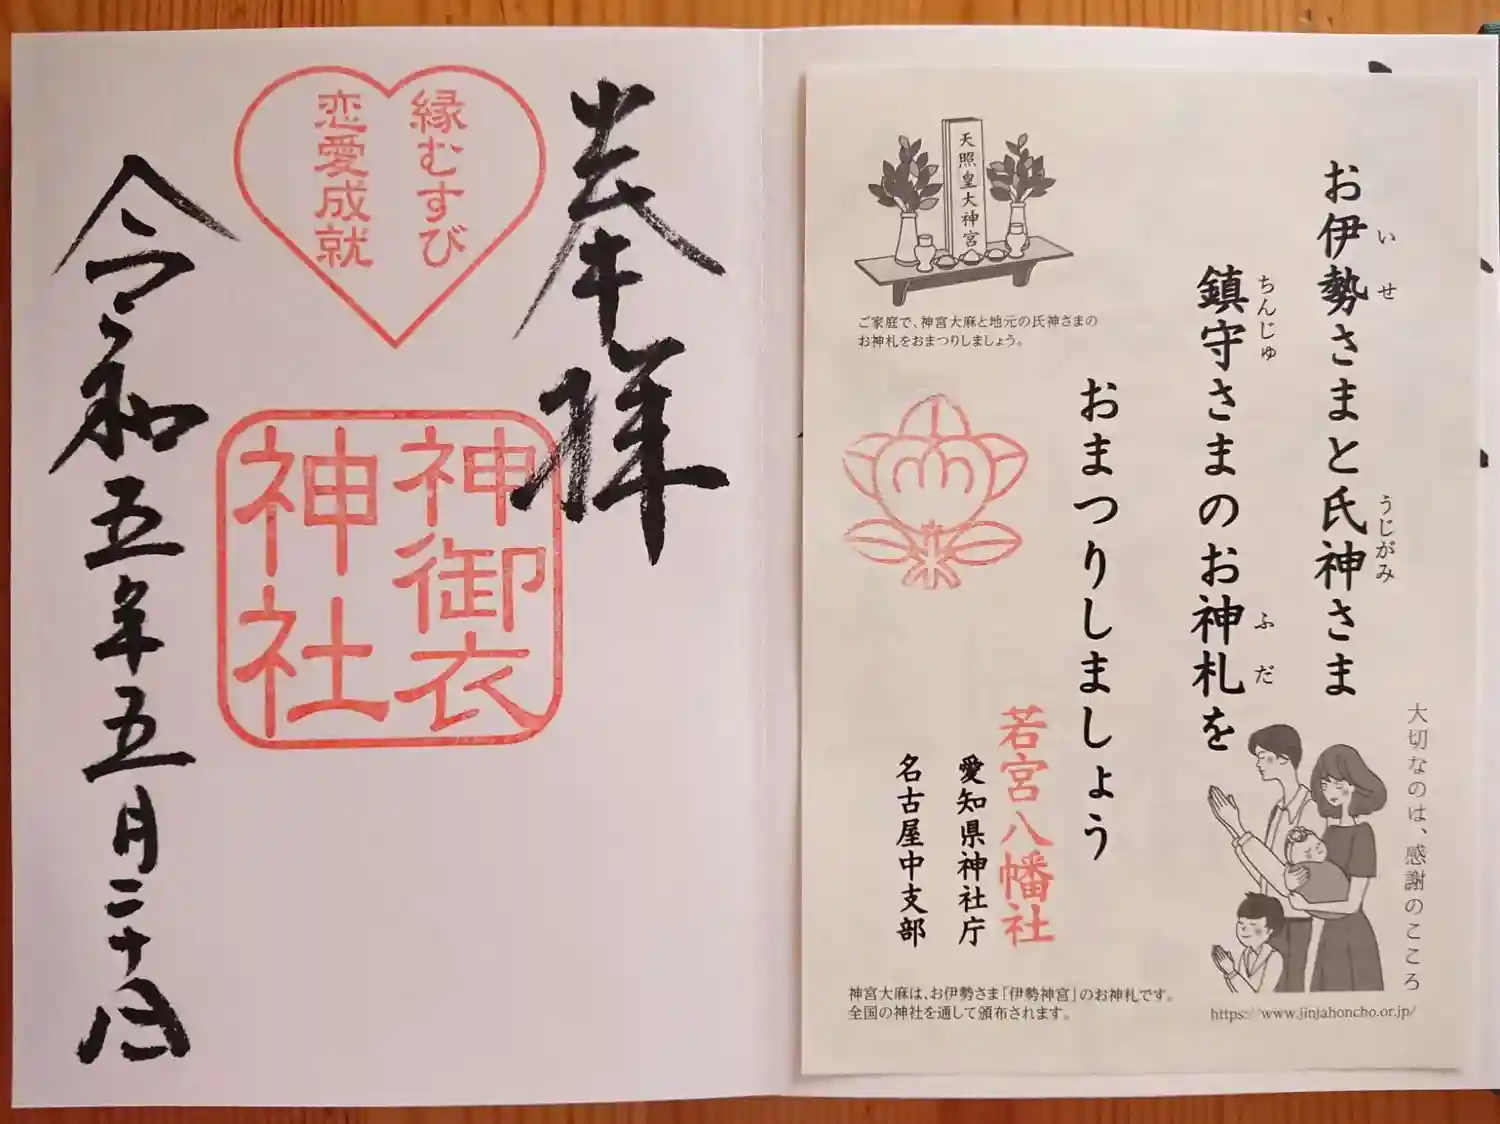 奉拝
縁むすび
恋愛成就
神御衣
神社
令和五年五月二十日
天照皇大神宮
ご家庭で、神宮大麻と地元の氏神さまの
お神札をおまつりしましょう。
お伊勢さまと氏神さま
いせ
うじがみ
鎮守さまのお神札を
ちんじゅ
ふだ
おまつりしましょう
若宮八幡社
愛知県神社庁
名古屋中支部
大切なのは、感謝のこころ
神宮大麻は、お伊勢さま「伊勢神宮」のお神札です。
全国の神社を通して頒布されます。
https://www.jinjahoncho.or.jp/